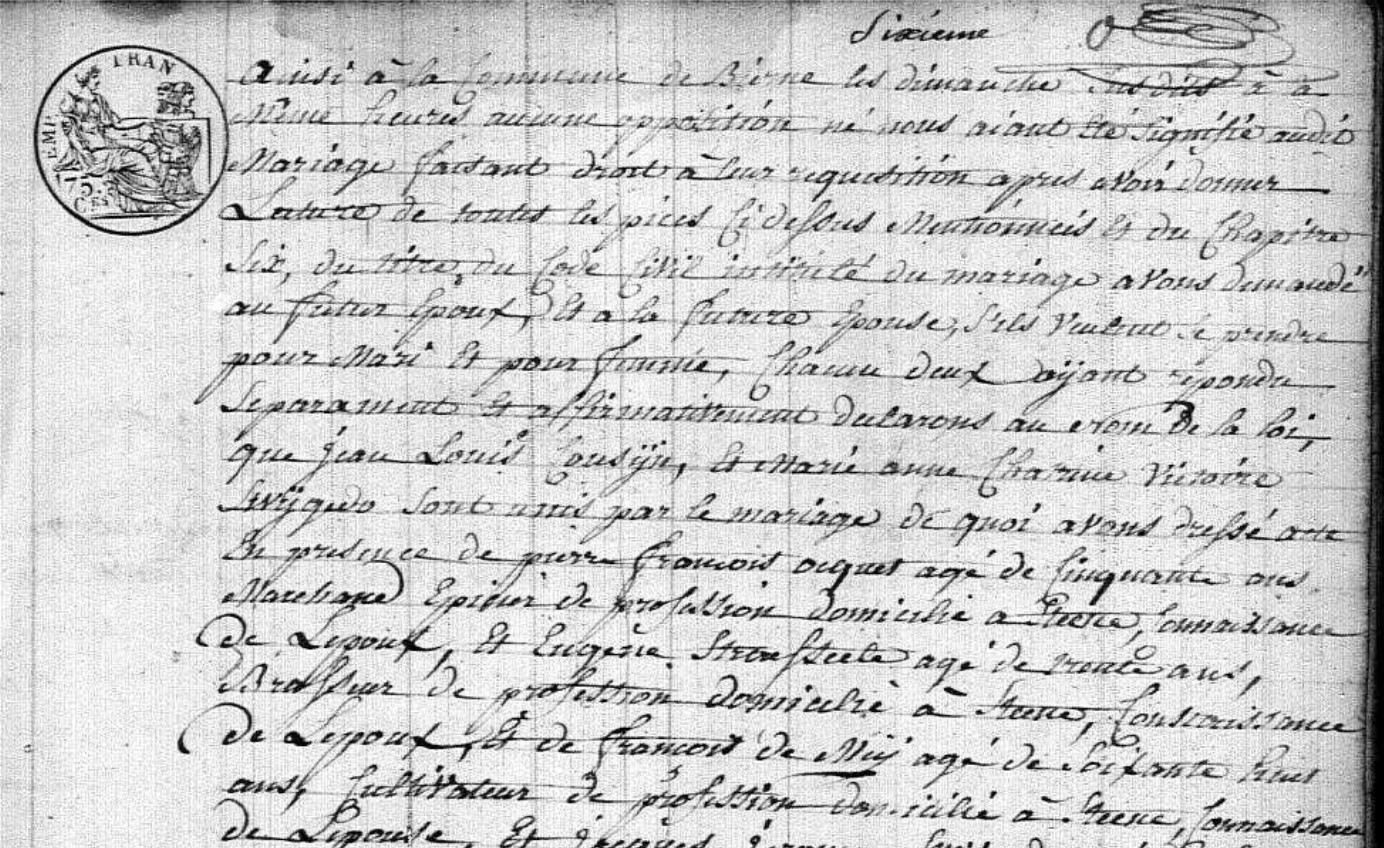 Sixieme
EMP FRAN
75. CES
ainsi à la Commune de Bierne les dimanche susdits à a
Même heures aucune opposition né nous aiant été Signifié audit
Mariage faisant droit à leur requisition apres avoir donner
Lecture de toutes les pieces Ci dessus Mentionneis Et du Chapitre
Six, du titre, du Code Civil intitulé du mariage avons demandé
au futur Epoux, Et a la future Epouse, S'ils Veulent Se prendre
pour Mari Et pour femme, Chacun deux aÿant repondu
Separament Et affirmativement declarons au Nom de la loi,
que Jean Louis Cousÿn, Et Marie anne Victoire
Swÿgedo Sont unis par le mariage de quoi avons dressé acte
En presence de pierre François acquet agé de Cinquante ans
Marchand Epicier de profession domicilié a Steene, Connaissance
de Lepoux, Et Eugène agé de trente ans,
Brasseur de profession domicilié à Steene, Connaissance
de Lepoux, Et de François de Mey agé de Soixante huit
ans, Cultivateur de profession domicilié à Steene, Connaissance
de Lepouse, Et Jacques